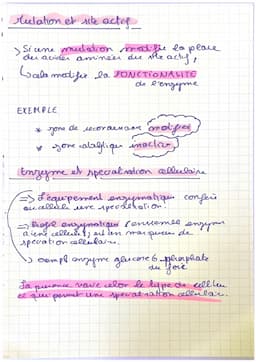 Mutation et site actif
→ Si une mutation modifie la place
des acides aminés du site actif,
↳ cela modifie la FONCTIONALITE
de l'enzyme
EXEMPLE
* zone de reconnaissance modifiée
* zone catalytique inactive
Enzyme et spécialisation cellulaire
⇒ L'équipement enzymatique confère
aux cellules une spécialisation.
⇒ Profil enzymatique (ensemble enzymes
d'une cellule) est un marqueur de
spécialisation cellulaire.
→ exmpl enzyme glucose 6 phosphate
du foie
La présence varie selon le type de cellule
ce qui permet une spécialisation cellulaire.